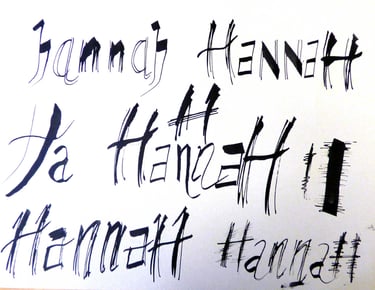 hannah Hannah
H
Ha Hannah
Hannah Hannah